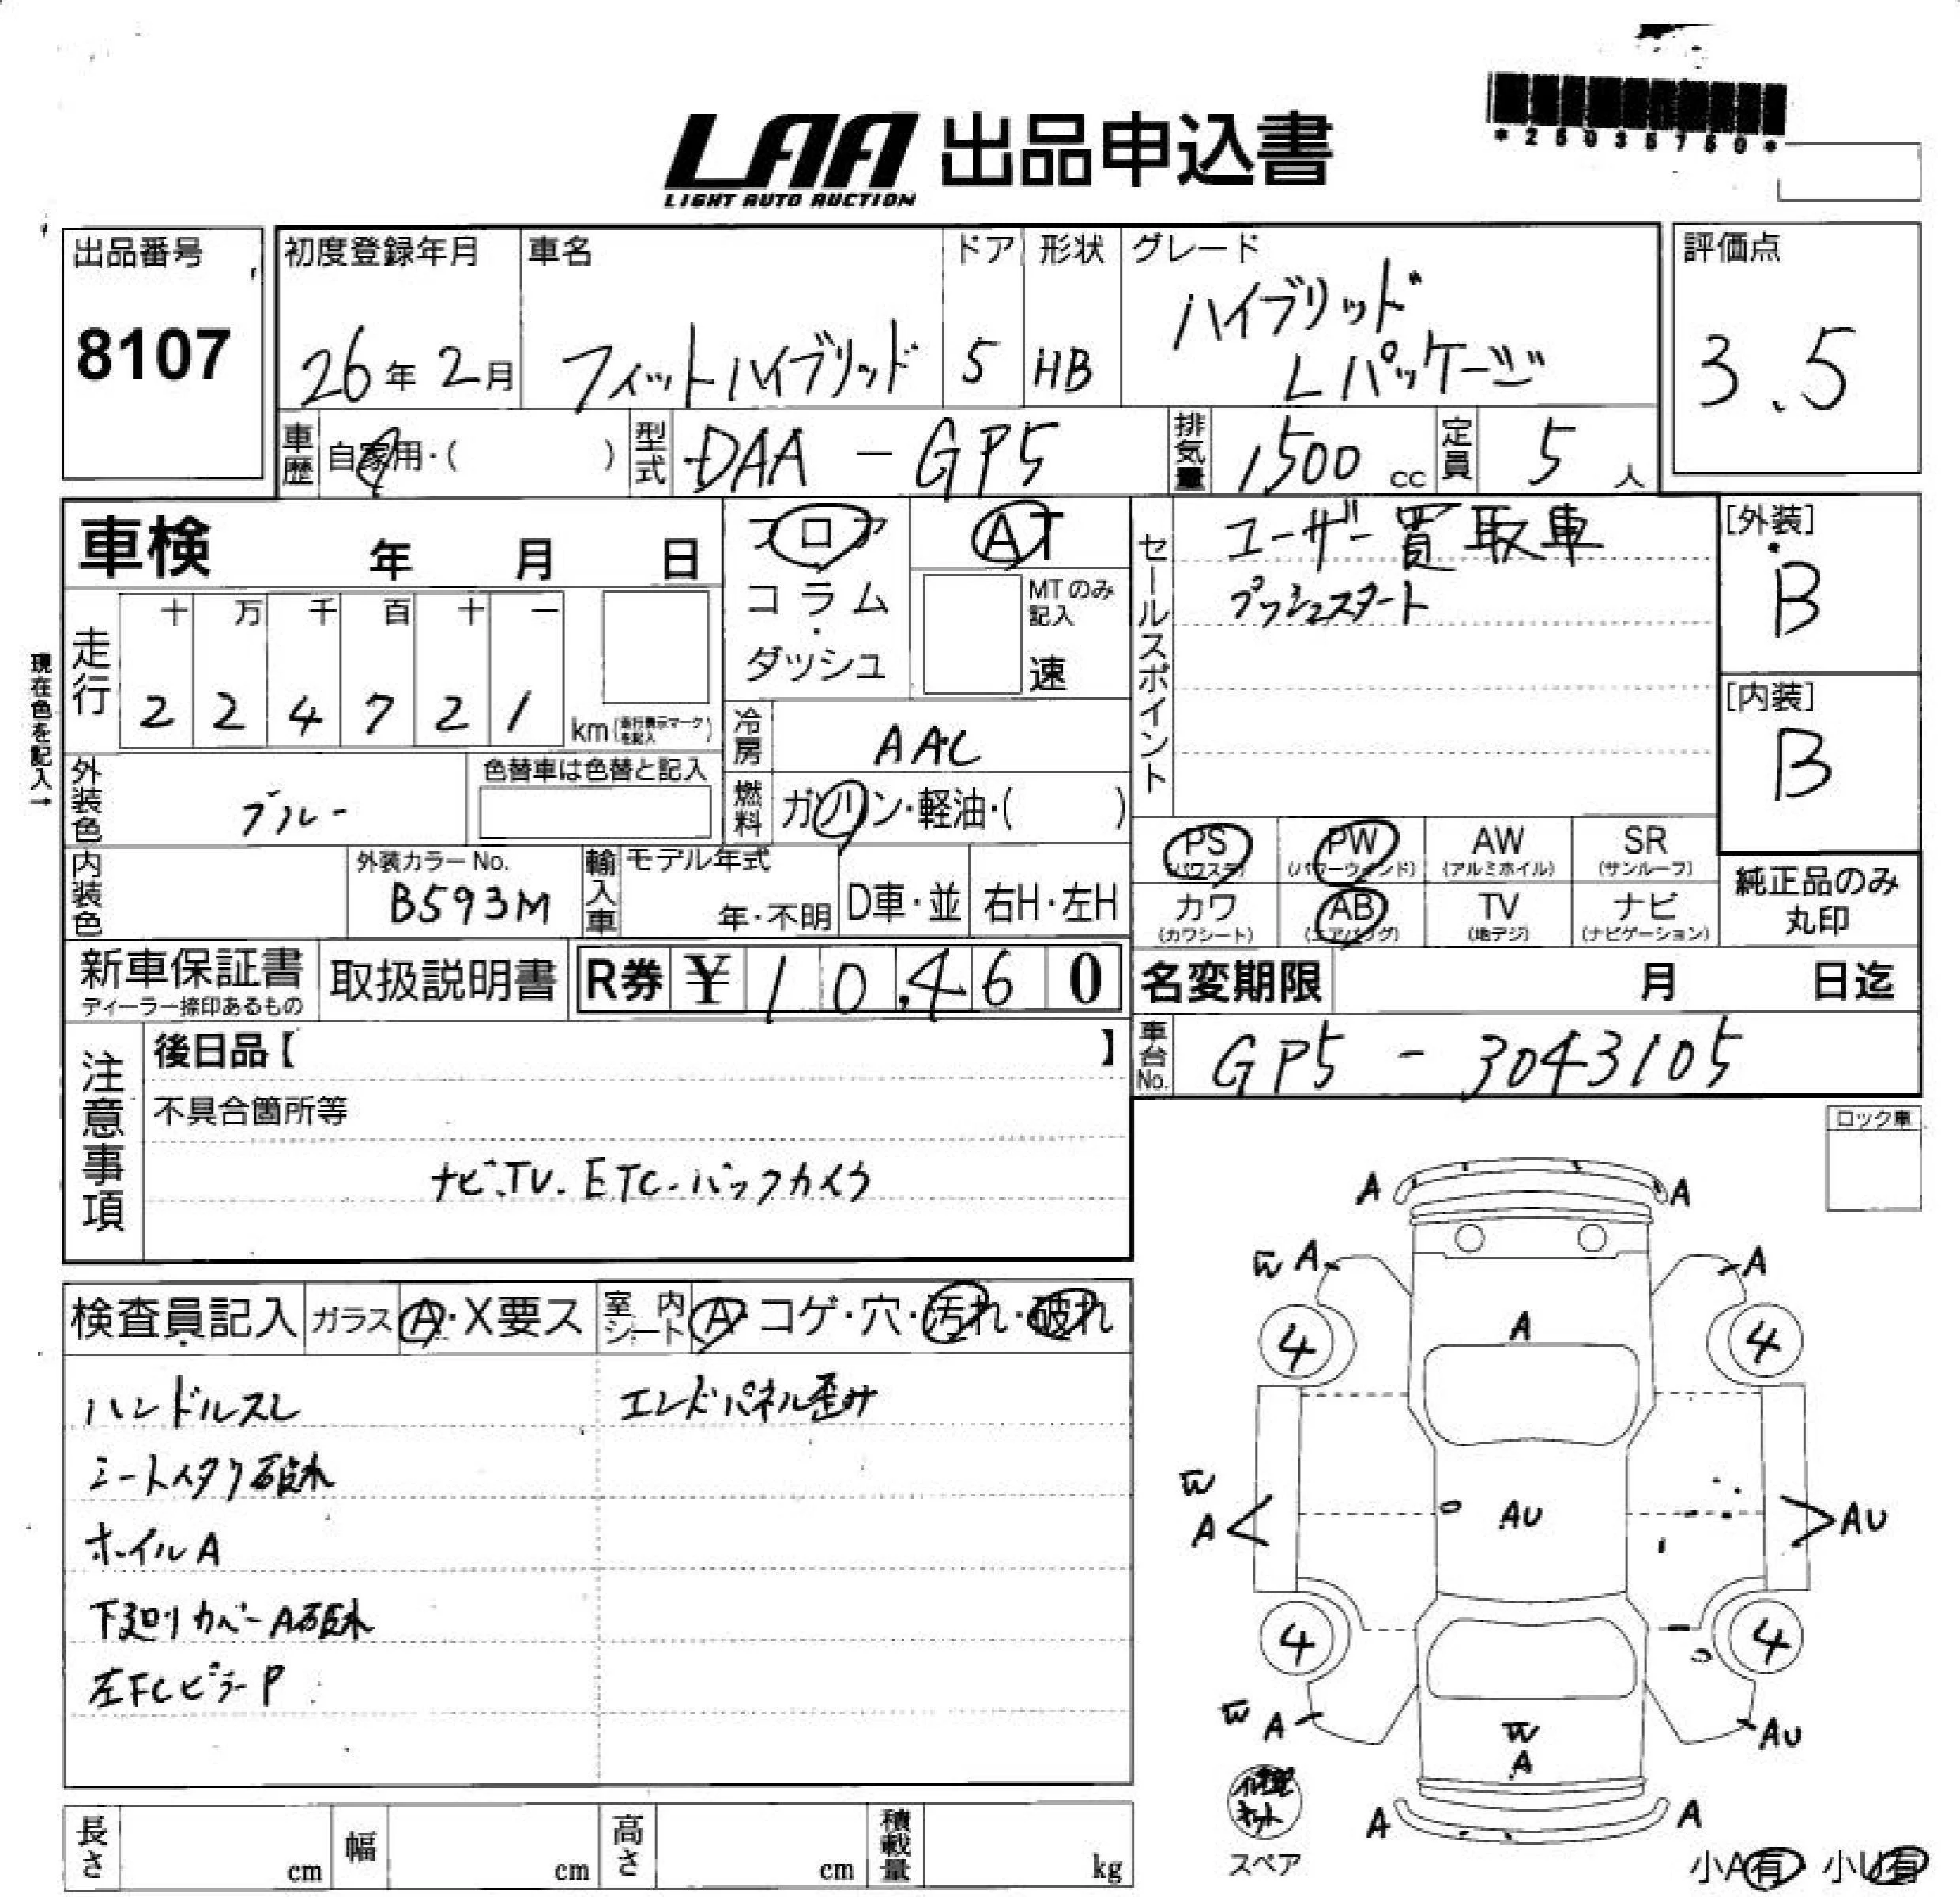 *25035750*
LAA 出品申込書
LIGHT AUTO AUCTION
出品番号
8107
初度登録年月
26年2月
車名
フィットハイブリッド
ドア
5
形状
HB
グレード
ハイブリッド
Lパッケージ
評価点
3.5
車歴
自家用・( )
型式
DAA-GP5
排気量
1500 cc
定員
5 人
車検 年 月 日
フロア
コラム
・
ダッシュ
AT
MTのみ
記入
速
セールスポイント
ユーザー買取車
プッシュスタート
[外装]
B
[内装]
B
現在色を記入→
走行
十 万 千 百 十 一
2 2 4 7 2 1
km(走行表示マークを記入)
冷房
AAC
燃料
ガソリン・軽油・( )
外装色
ブルー
色替車は色替と記入
内装色
外装カラーNo.
B593M
輸入車
モデル年式
年・不明
D車・並
右H・左H
PS
(パワステ)
PW
(パワーウインド)
AW
(アルミホイル)
SR
(サンルーフ)
カワ
(カワシート)
AB
(エアバッグ)
TV
(地デジ)
ナビ
(ナビゲーション)
純正品のみ
丸印
新車保証書
ディーラー捺印あるもの
取扱説明書
R券 ¥ 10,460
名変期限 月 日迄
車台No.
GP5-3043105
注意事項
後日品【 】
不具合箇所等
ナビ.TV.ETC.バックカメラ
ロック車
検査員記入
ガラス
A・X要ス
室内シート
A・コゲ・穴・汚れ・破れ
ハンドルスレ
エンドパネル歪み
シートスタク破れ
ホイルA
下廻りカバーA破れ
左FCピラーP
A A
W A A
4 A 4
W
A AU AU
4 4
W A AU
W
A
A A
修理
キット
スペア
小A有 小U有
長さ cm
幅 cm
高さ cm
積載量 kg